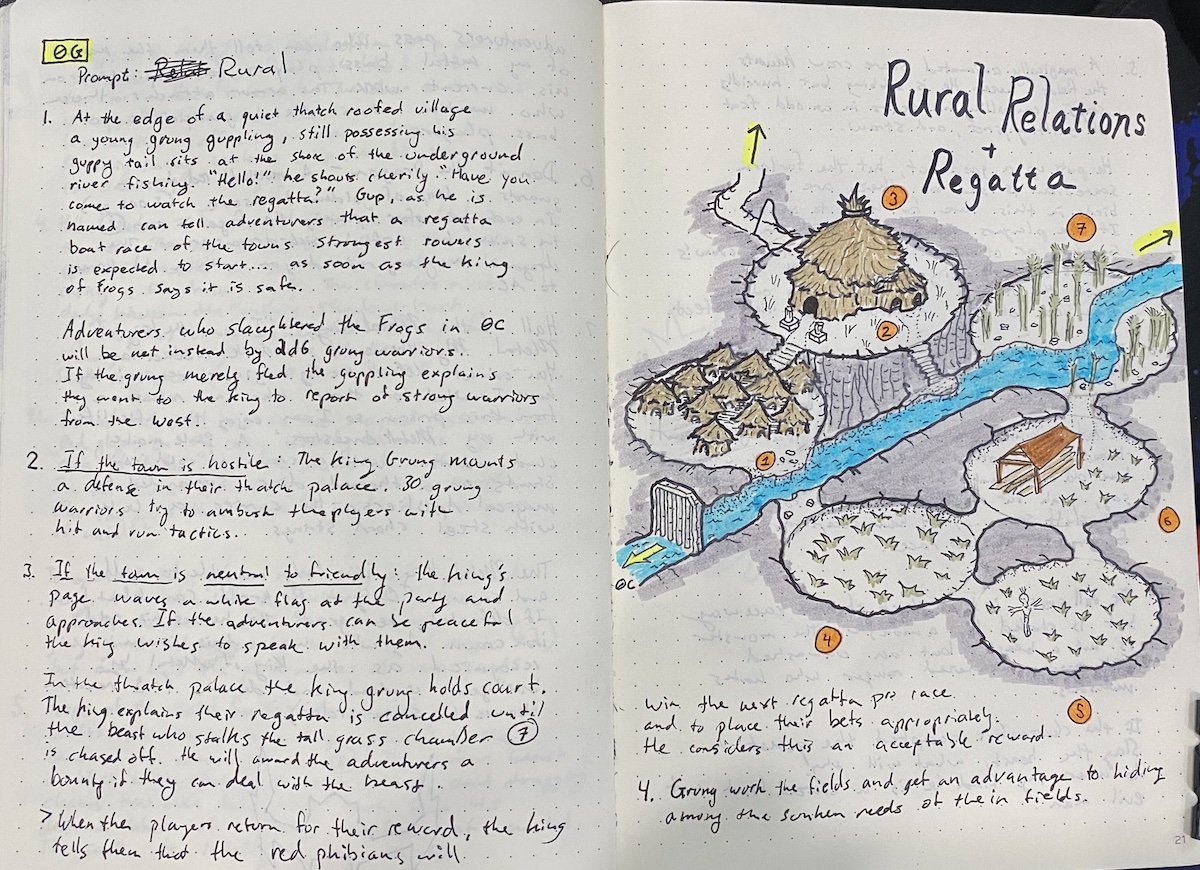 ØG
Prompt: Rural
1. At the edge of a quiet thatch roofed village
a young grung guppling, still possessing his
guppy tail sits at the shore of the underground
river fishing. "Hello!" he shouts cherily "Have you
come to watch the regatta?" Gup, as he is
named can tell adventurers that a regatta
boat race of the towns strongest rowers
is expected to start.... as soon as the King
of Frogs says it is safe.
Adventurers who slaughtered the Frogs in ØC
will be met instead by 2d6 grung warriors.
If the grung merely fled the guppling explains
they went to the king to report of strong warriors
from the west.
2. If the town is hostile: The King Grung mounts
a defense in their thatch palace. 30 grung
warriors try to ambush the players with
hit and run tactics.
3. If the town is neutral to friendly: the king's
page waves a white flag at the party and
approaches. If the adventurers can be peaceful
the king wishes to speak with them.
In the thatch palace the king grung holds court.
The king explains their regatta is cancelled until
the beast who stalks the tall grass chamber 7
is chased off. He will award the adventurers a
bounty if they can deal with the beast.
> When the players return for their reward, the king
tells them that the red phibians will
Rural Relations
+
Regatta
3
7
2
1
ØC
6
4
5
win the next regatta pro race
and to place their bets appropriately.
He considers this an acceptable reward.
4. Grung work the fields and get an advantage to hiding
among the sunken reeds of their fields.
21